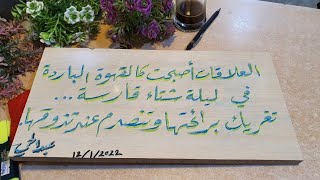 العلاقات أصبحت كالقهوة الباردة
في ليلة شتاء قارسة ...
تغريك برائحتها وتنصدم عند تذوقها.
12/1/2022